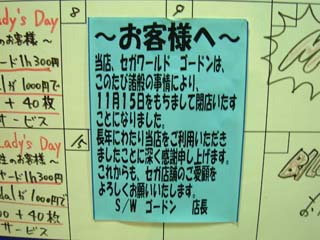 ～お客様へ～
当店、セガワールド ゴードンは、
このたび諸般の事情により、
11月15日をもちまして閉店いたす
ことになりました。
長年にわたり当店をご利用いただき
ましたことに深く感謝申し上げます。
これからも、セガ店舗のご愛顧を
よろしくお願いいたします。
S/W ゴードン 店長
ady's Day
のお客様
ード1h300円
alが1000円で
+ 40枚
サービス
8
9
Lady's Day
性のお客様
ード1h300円
dalが1000円で
00 + 40枚
サービス